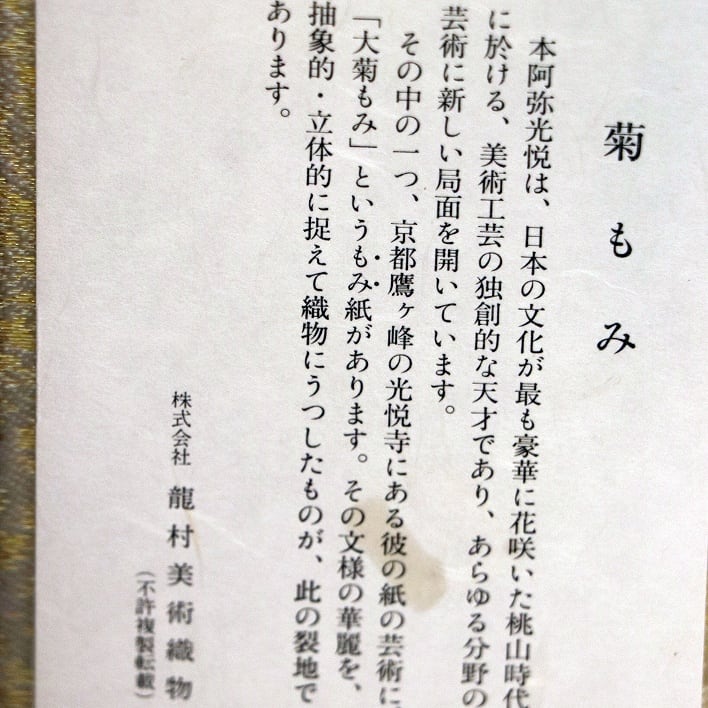 菊もみ
本阿弥光悦は、日本の文化が最も豪華に花咲いた桃山時代
に於ける、美術工芸の独創的な天才であり、あらゆる分野の
芸術に新しい局面を開いています。
その中の一つ、京都鷹ヶ峰の光悦寺にある彼の紙の芸術に、
「大菊もみ」というもみ紙があります。その文様の華麗を、
抽象的・立体的に捉えて織物にうつしたものが、此の裂地で
あります。
株式会社 龍村美術織物
(不許複製転載)